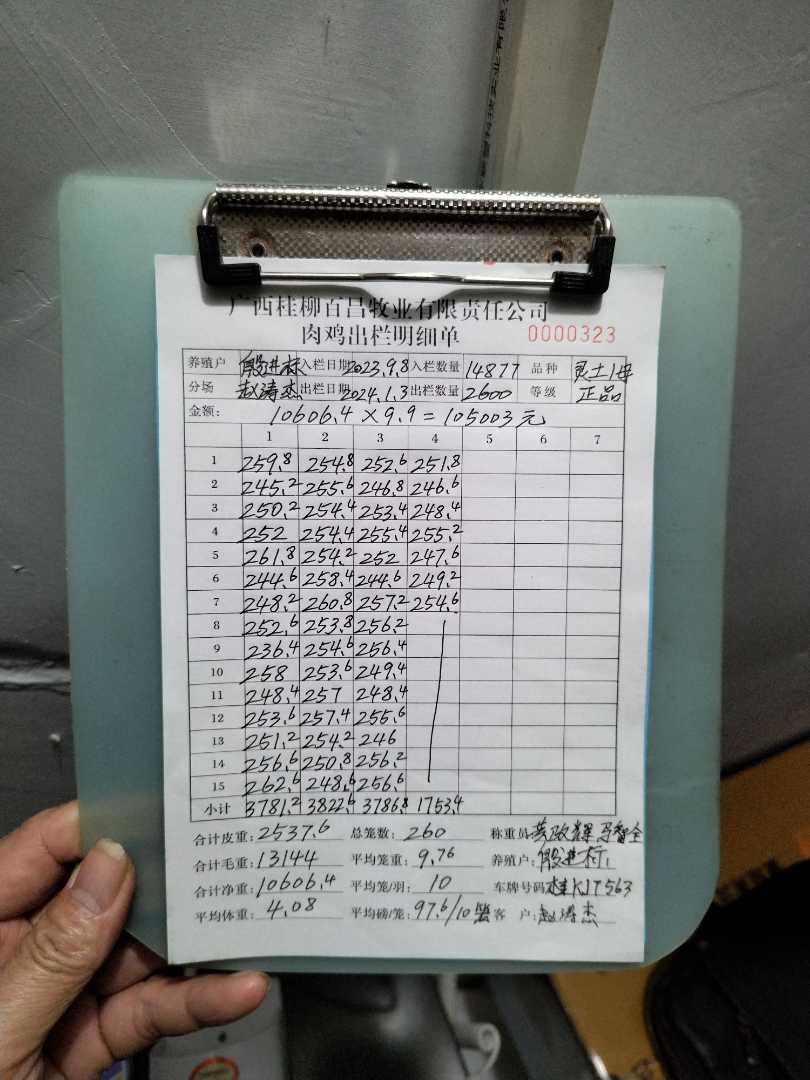 广西桂柳百昌牧业有限责任公司
肉鸡出栏明细单 0000323
养殖户 殷进标 入栏日期 2023.9.8 入栏数量 14877 品种 灵土1母
分场 赵涛杰 出栏日期 2024.1.3 出栏数量 2600 等级 正品
金额: 10606.4 × 9.9 = 105003元
1 2 3 4 5 6 7
1 259.8 254.8 252.6 251.8
2 245.2 255.6 246.8 246.6
3 250.2 254.4 253.4 248.4
4 252 254.4 255.4 255.2
5 261.8 254.2 252 247.6
6 244.6 258.4 244.6 249.2
7 248.2 260.8 257.2 254.6
8 252.6 253.8 256.2
9 236.4 254.6 256.4
10 258 253.6 249.4
11 248.4 257 248.4
12 253.6 257.4 255.6
13 251.2 254.2 246
14 256.6 250.8 256.2
15 262.6 248.6 256.6
小计 3781.2 3822.6 3786.8 1753.4
合计皮重: 2537.6 总笼数: 260 称重员:
合计毛重: 13144 平均笼重: 9.76 养殖户: 殷进标
合计净重: 10606.4 平均笼/羽: 10 车牌号码 桂KJT563
平均体重: 4.08 平均磅/笼: 97.6/10 客 户: 赵涛杰